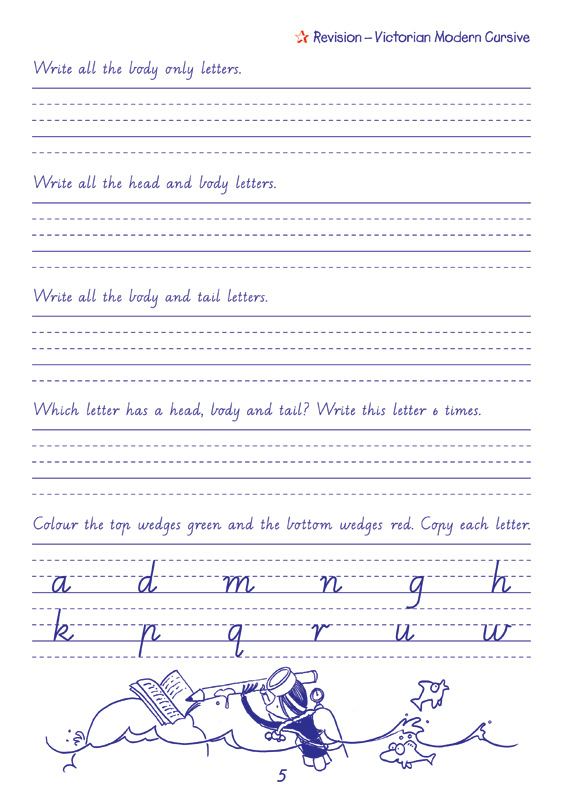 Revision – Victorian Modern Cursive
Write all the body only letters.
Write all the head and body letters.
Write all the body and tail letters.
Which letter has a head, body and tail? Write this letter 6 times.
Colour the top wedges green and the bottom wedges red. Copy each letter.
a d m n g h
k p q r u w
5